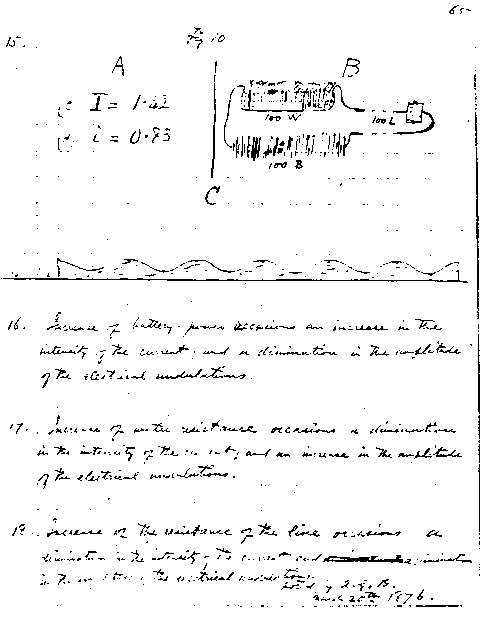 65
15. Fig 10
A B
I = 1.42
i = 0.83
100 W
100 L
100 B
C
16. Increase of battery-power occasions an increase in the
intensity of the current; and a diminution in the amplitude
of the electrical undulations.
17. Increase of resistance occasions a diminution
in the intensity of the current; and an increase in the amplitude
of the electrical undulations.
Increase of the resistance of the line occasions a
diminution in the intensity of the current and diminution
in the of the electrical undulations.
by A.G.B.
March 20th 1876.